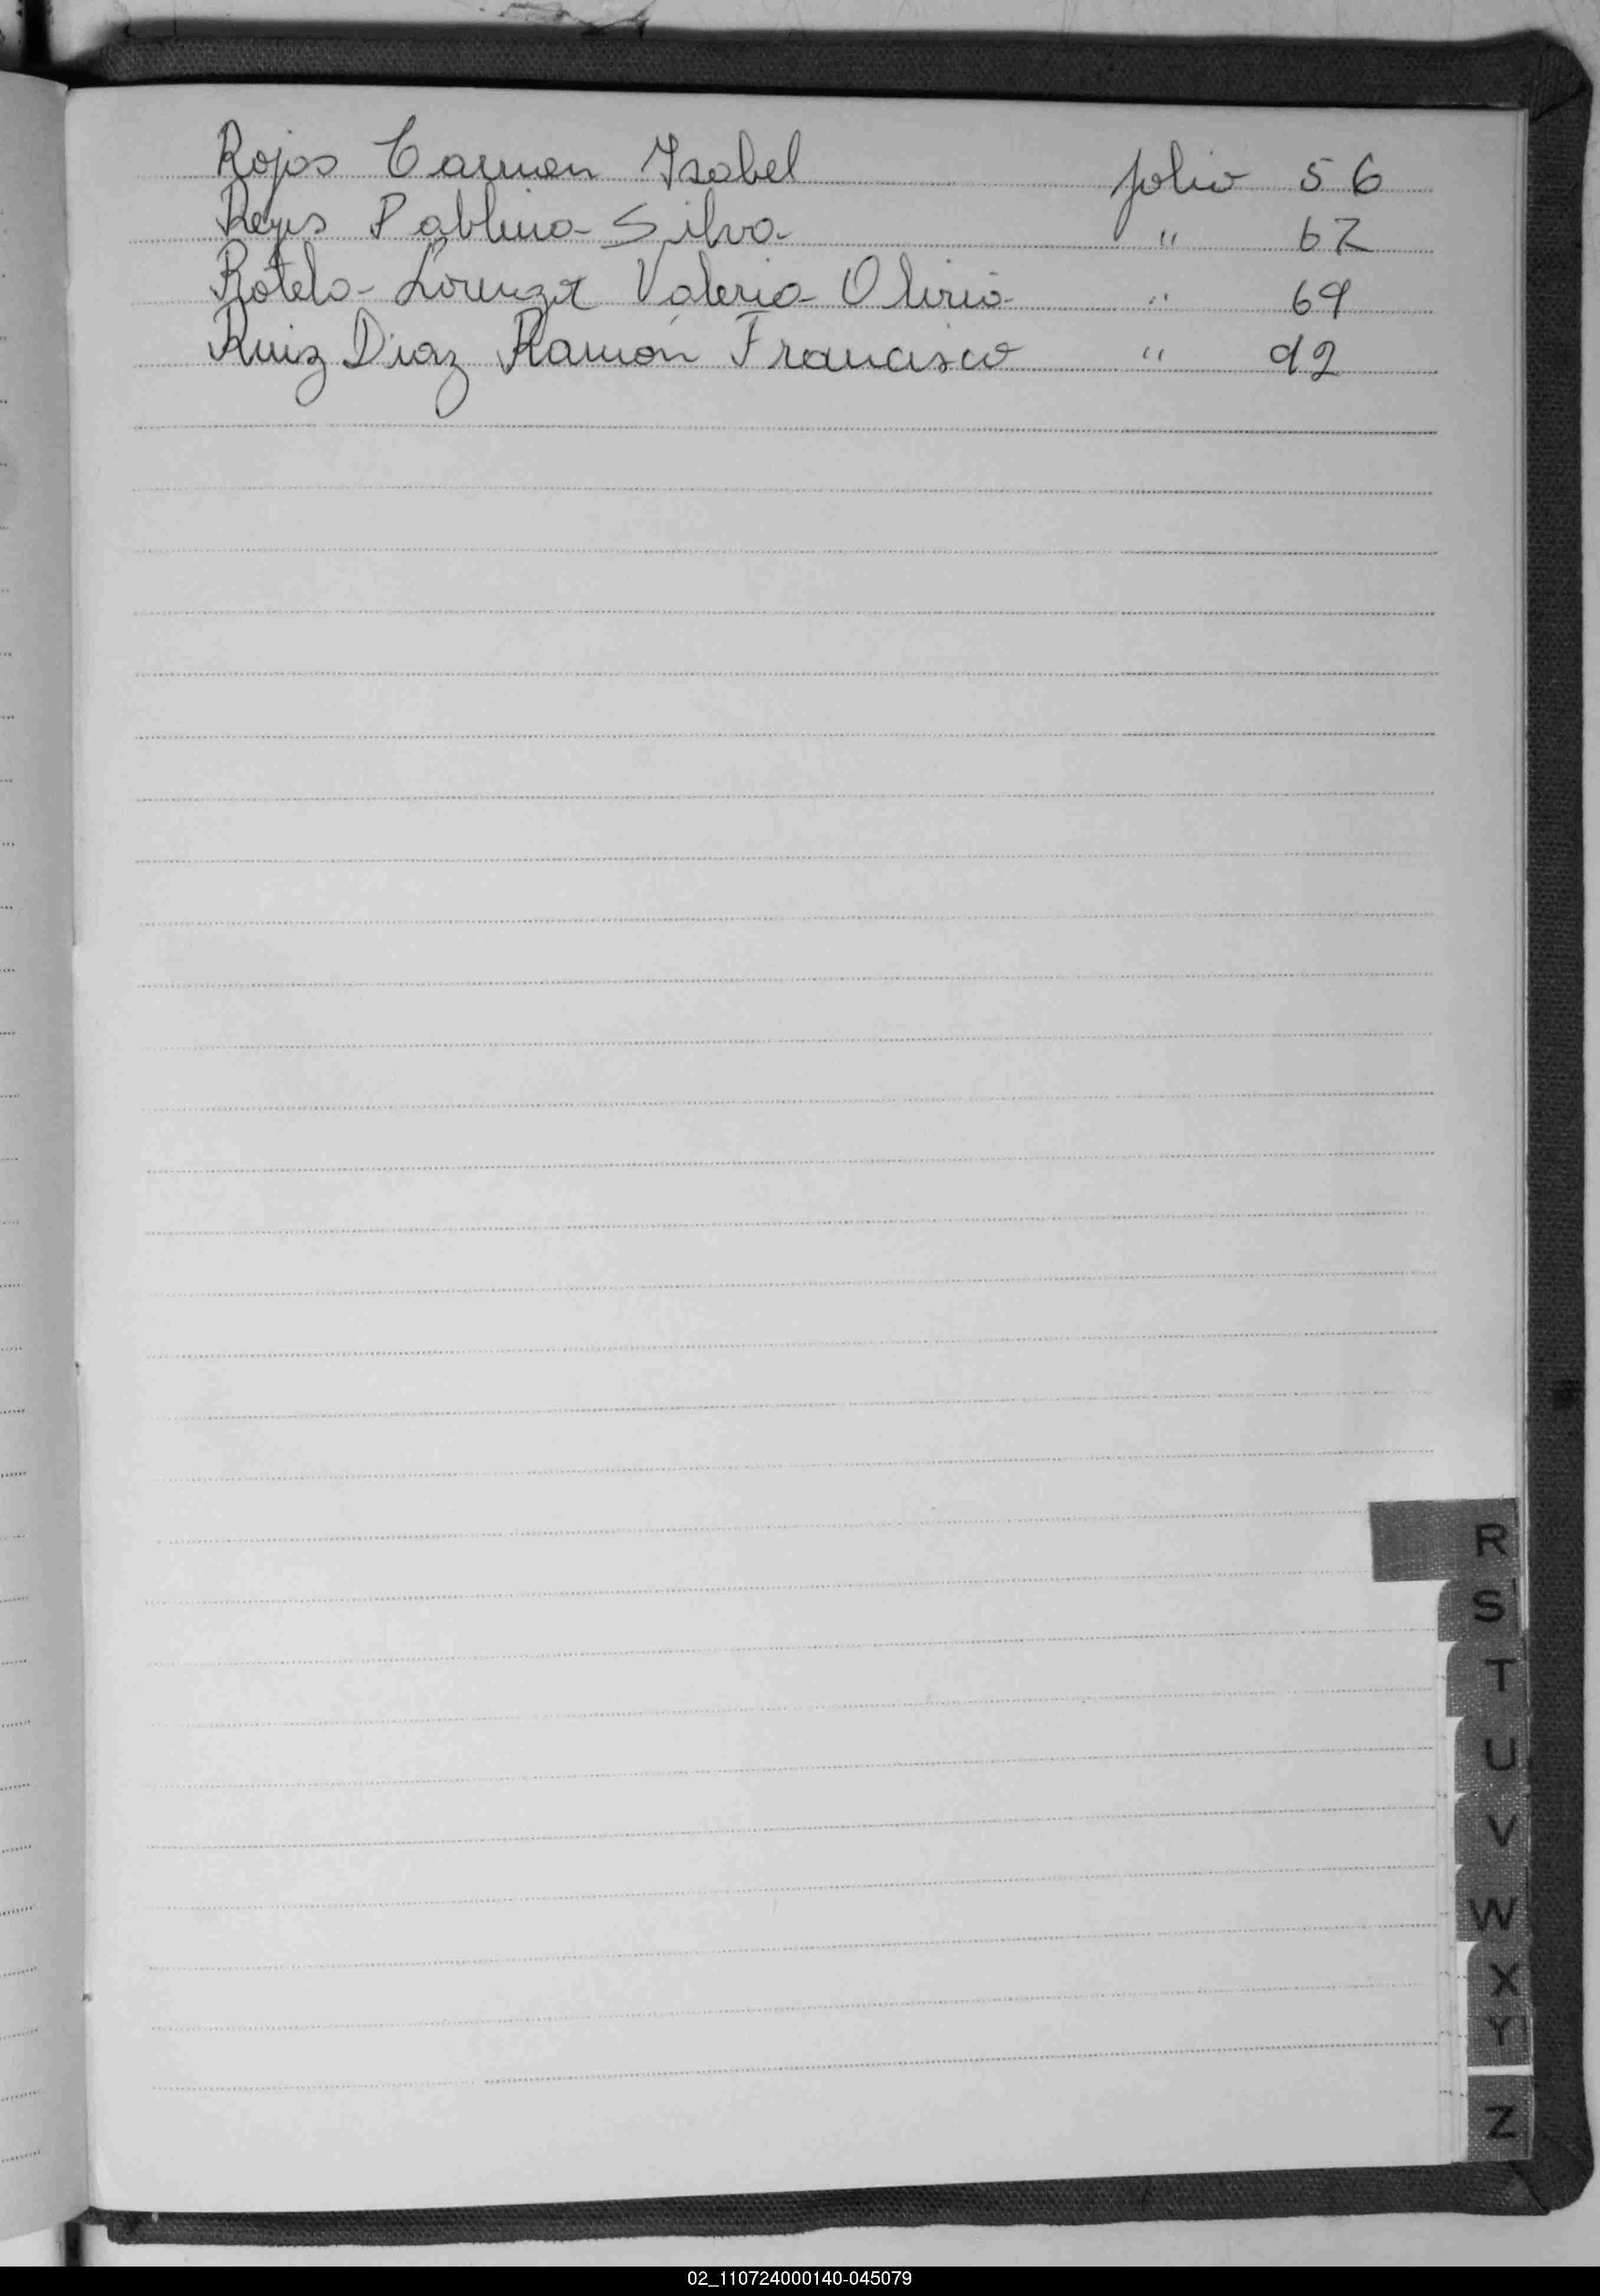 Rojas Carmen Isabel folio 56
Reyes Pablina Silva " 62
Rotela Lorenza Valeria Oliria " 69
Ruiz Diaz Ramón Francisco " 92
R
S
T
U
V
W
X
Y
Z
02_110724000140-045079